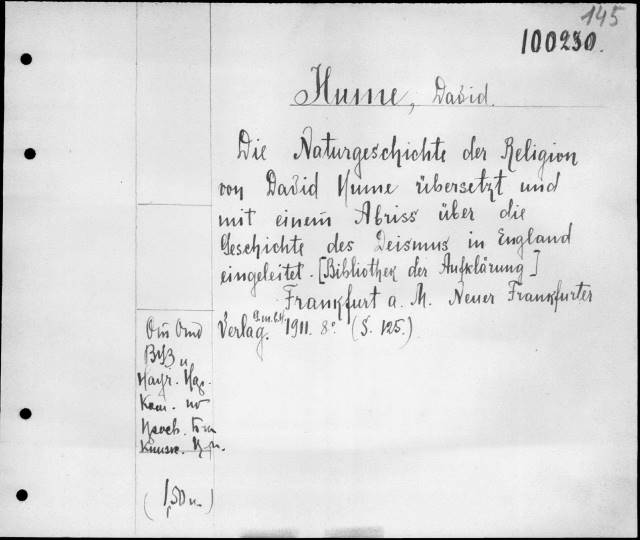 145
100230.
Hume, David.
Die Naturgeschichte der Religion
von David Hume übersetzt und
mit einem Abriss über die
Geschichte des Deismus in England
eingeleitet. [Bibliothek der Aufklärung]
Frankfurt a. M. Neuer Frankfurter
Verlag. G.m.b.H. 1911. 8° (S. 125.)
(1,50 м)